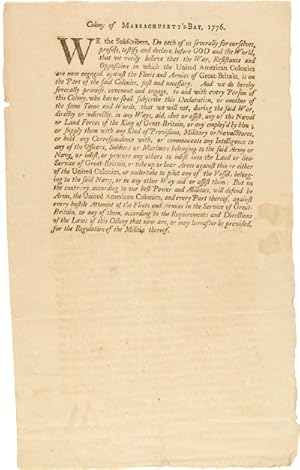 Colony of MASSACHUSETT'S-BAY, 1776.
WE the Subscribers, Do each of us severally for ourselves,
profess, testify and declare, before GOD and the World,
that we verily believe that the War, Resistance and
Opposition in which the United American Colonies
are now engaged, against the Fleets and Armies of Great-Britain, is on
the Part of the said Colonies, just and necessary. And we do hereby
severally promise, covenant and engage, to and with every Person of
this Colony, who has or shall subscribe this Declaration, or another of
the same Tenor and Words, that we will not, during the said War
directly or indirectly, in any Ways, aid, abet or assist, any of the Naval
or Land Forces of the King of Great-Britain, or any employ'd by him;
or supply them with any Kind of Provisions, Military or Naval Stores,
or hold any Correspondence with, or communicate any Intelligence to
any of the Officers, Soldiers or Mariners belonging to the said Army or
Navy, or inlist, or procure any others to inlist into the Land or Sea-
Service of Great-Britain, or take up or bear Arms against this or either
of the United Colonies, or undertake to pilot any of the Vessels belong-
ing to the said Navy, or in any other Way aid or assist them: But on
the contrary, according to our best Power and Abilities, will defend by
Arms, the United American Colonies, and every Part thereof, against
every hostile Attempt of the Fleets and Armies in the Service of Great-
Britain, or any of them, according to the Requirements and Directions
of the Laws of this Colony that now are, or may hereafter be provided,
for the Regulation of the Militia thereof.